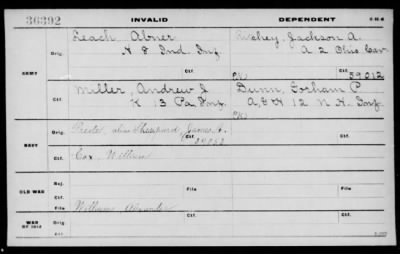 36392 INVALID DEPENDENT
Leach Abner
Orig. H 8 Ind. Inf.
Richey, Jackson A.
A 2 Ohio Cav
ARMY
Ctf.
59012
Miller, Andrew J
Ctf. K 13 Pa. Inf.
Dunn, Gorham P
A, E & H 12 N H. Inf.
Orig. alias Shepherd, James H.
Ctf.
NAVY
Ctf. Cox, William
OLD WAR
Rej.
Ctf.
File
Ctf.
File
File Williams, Alexander
WAR OF 1812
Orig.
Ctf.
Ctf.